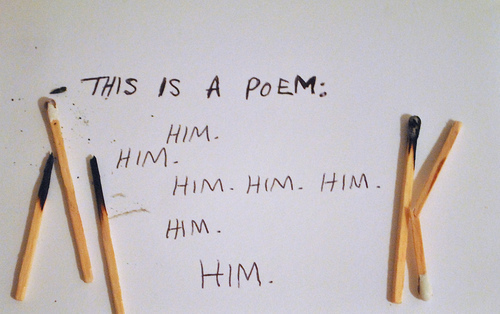 THIS IS A POEM:
HIM.
HIM.
HIM. HIM. HIM.
HIM.
HIM.